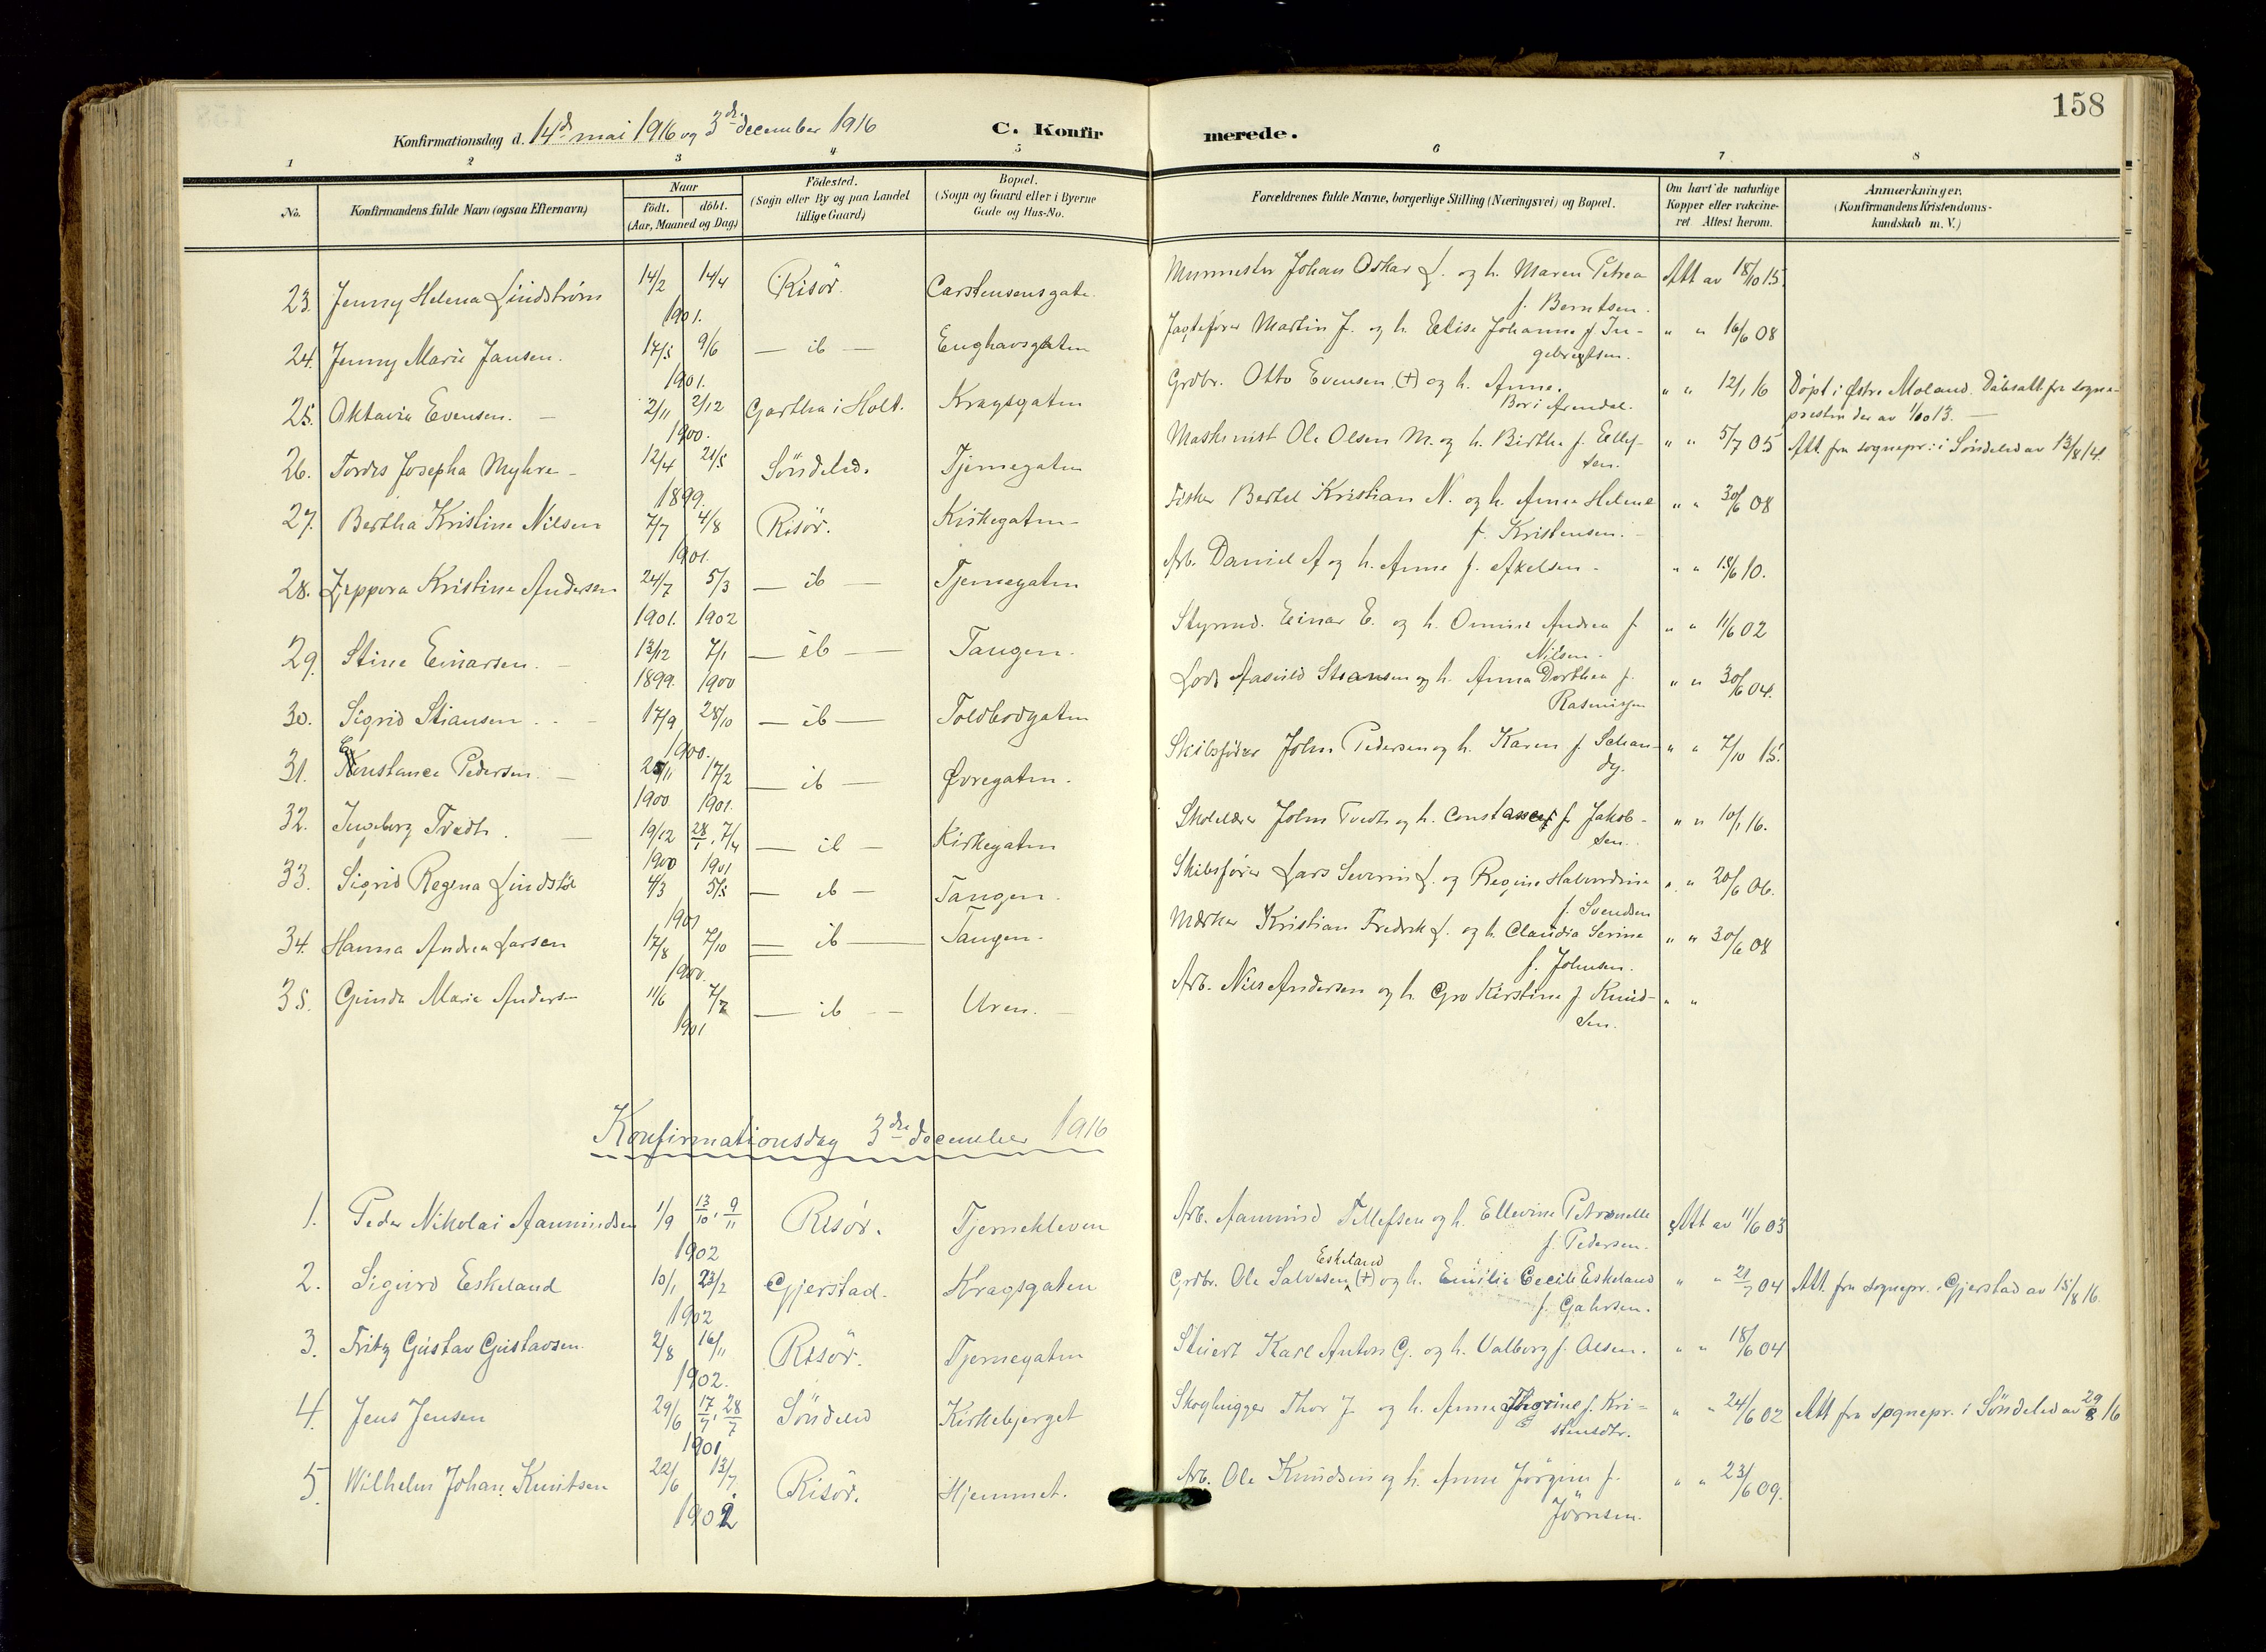 158
Konfirmationsdag d. 14de mai 1916 og 3dje december 1916 C. Konfirmerede.
1 2 3 4 5 6 7 8
No.
Konfirmandens fulde Navn (ogsaa Efternavn)
Naar
födt. döbt.
(Aar, Maaned og Dag)
Födested.
(Sogn eller By og paa Landet
tillige Gaard)
Bopæl.
(Sogn og Gaard eller i Byerne
Gade og Hus-No.
Forældrenes fulde Navne, borgerlige Stilling (Næringsvei) og Bopæl.
Om havt de naturlige
Kopper eller vakcine-
ret Attest herom.
Anmærkninger.
(Konfirmandens Kristendoms-
kundskab m. V.)
23. Jenny Helena Lindstrøm 14/2 14/4 Risör. Carstensensgate. Murmester Johan Oskar L. og h. Maren Petrea Att av 18/10 15.
1901. f. Berntsen.
24. Jenny Marie Jansen. 17/5 9/6 — ib — Enghavsgaten Jagtefører Martin J. og h. Elise Johanne f. In- " " 16/6 08
1901. gebregtsen.
25. Oktavia Evensen. — 2/11 2/12 Gartha i Holt. Kragsgaten Grdbr. Otto Evensen (+) og h. Anne. " " 12/1 16 Döpt i Østre Moland. Dåbsatt. fra sogne-
1900. Bor i Arendal. presten der av 1/10 13. —
26. Tordis Josepha Myhre — 12/4 21/5 Söndeled. Tjernegaten Maskinist Ole Olsen M. og h. Birthe f. Ellef- " " 5/7 05 Att. fra sognepr. i Söndeled av 13/8 14.
1899. sen.
27. Bertha Kristine Nilsen 7/7 4/8 Risör. Kirkegaten — Fisker Bertel Kristian N. og h. Anne Helene " " 30/6 08
1901. f. Kristensen. —
28. Zeppora Kristine Andersen 24/7 5/3 — ib — Tjernegaten Arb. Daniel A og h. Anne f. Akselsen. " " 15/6 10.
1901. 1902
29. Stine Einarsen. — 13/12 7/1 — ib — Tangen. Styrmd. Einar E. og h. Omine Andrea f. " " 11/6 02
1899. 1900 Nilsen.
30. Sigrid Stiansen. — 17/9 28/10 — ib — Toldbodgaten Lods Aasuld Stiansen og h. Anna Dorthea f. " " 30/6 04.
1900. Rasmussen
31. Constance Pedersen. — 25/11 17/2 — ib — Øvregaten. Skibsfører John Pedersen og h. Karen f. Schan- " " 7/10 15.
1900 1901. dy.
32. Ingeborg Tvedt. — 19/12 28/1, 7/4 — ib — Kirkegaten Skolelærer John Tvedt og h. Constance f. Jakob- " " 10/1 16.
1900 1901 sen.
33. Sigrid Regina Lindstöl 4/3 5/5 — ib — Tangen. Skibsfører Lars Severin L. og Regine Halvordine " " 20/6 06.
1901 f. Svendsen
34. Hanna Andrea Larsen 17/8 7/10 — ib — Tangen. Mærker Kristian Fredrik L. og h. Claudia Serine " " 30/6 08
1900. f. Johnsen.
35. Gunda Marie Andersen 11/6 7/7 — ib — Uren. — Arb. Nils Andersen og h. Gro Kirstine f. Knud- " "
1901 sen.
Konfirmationsdag 3dje december 1916
1. Peder Nikolai Aanundsen 1/9 13/10, 9/11 Risör. Tjernekleven Arb. Aanund Tellefsen og h. Ellevine Petronelle Att av 11/6 03
1902 f. Pedersen.
2. Sigurd Eskeland 10/1 23/2 Gjerstad. Kragsgaten Grdbr. Ole Salvesen Eskeland (+) og h. Emilie Cecilie Eskeland " " 21/7 04 Att. fra sognepr. i Gjerstad av 15/8 16.
1902 f. Gahrsen.
3. Fritz Gustav Gustavsen. 2/8 16/11 Risör. Tjernegaten Stuert Karl Anton G. og h. Valborg f. Olsen. " " 18/6 04
1902.
4. Jens Jensen 29/6 17/7, 28/7 Söndeled Kirkebjerget Skoghugger Thor J. og h. Anne Thorine f. Kri- " " 24/6 02 Att fra sognepr. i Söndeled av 29/8 16
1901 stensdtr.
5. Wilhelm Johan Knutsen 22/6 13/7 Risör. Hjemmet. Arb. Ole Knudsen og h. Anne Jörgine f. " " 23/6 09.
1902 Jörnsen.